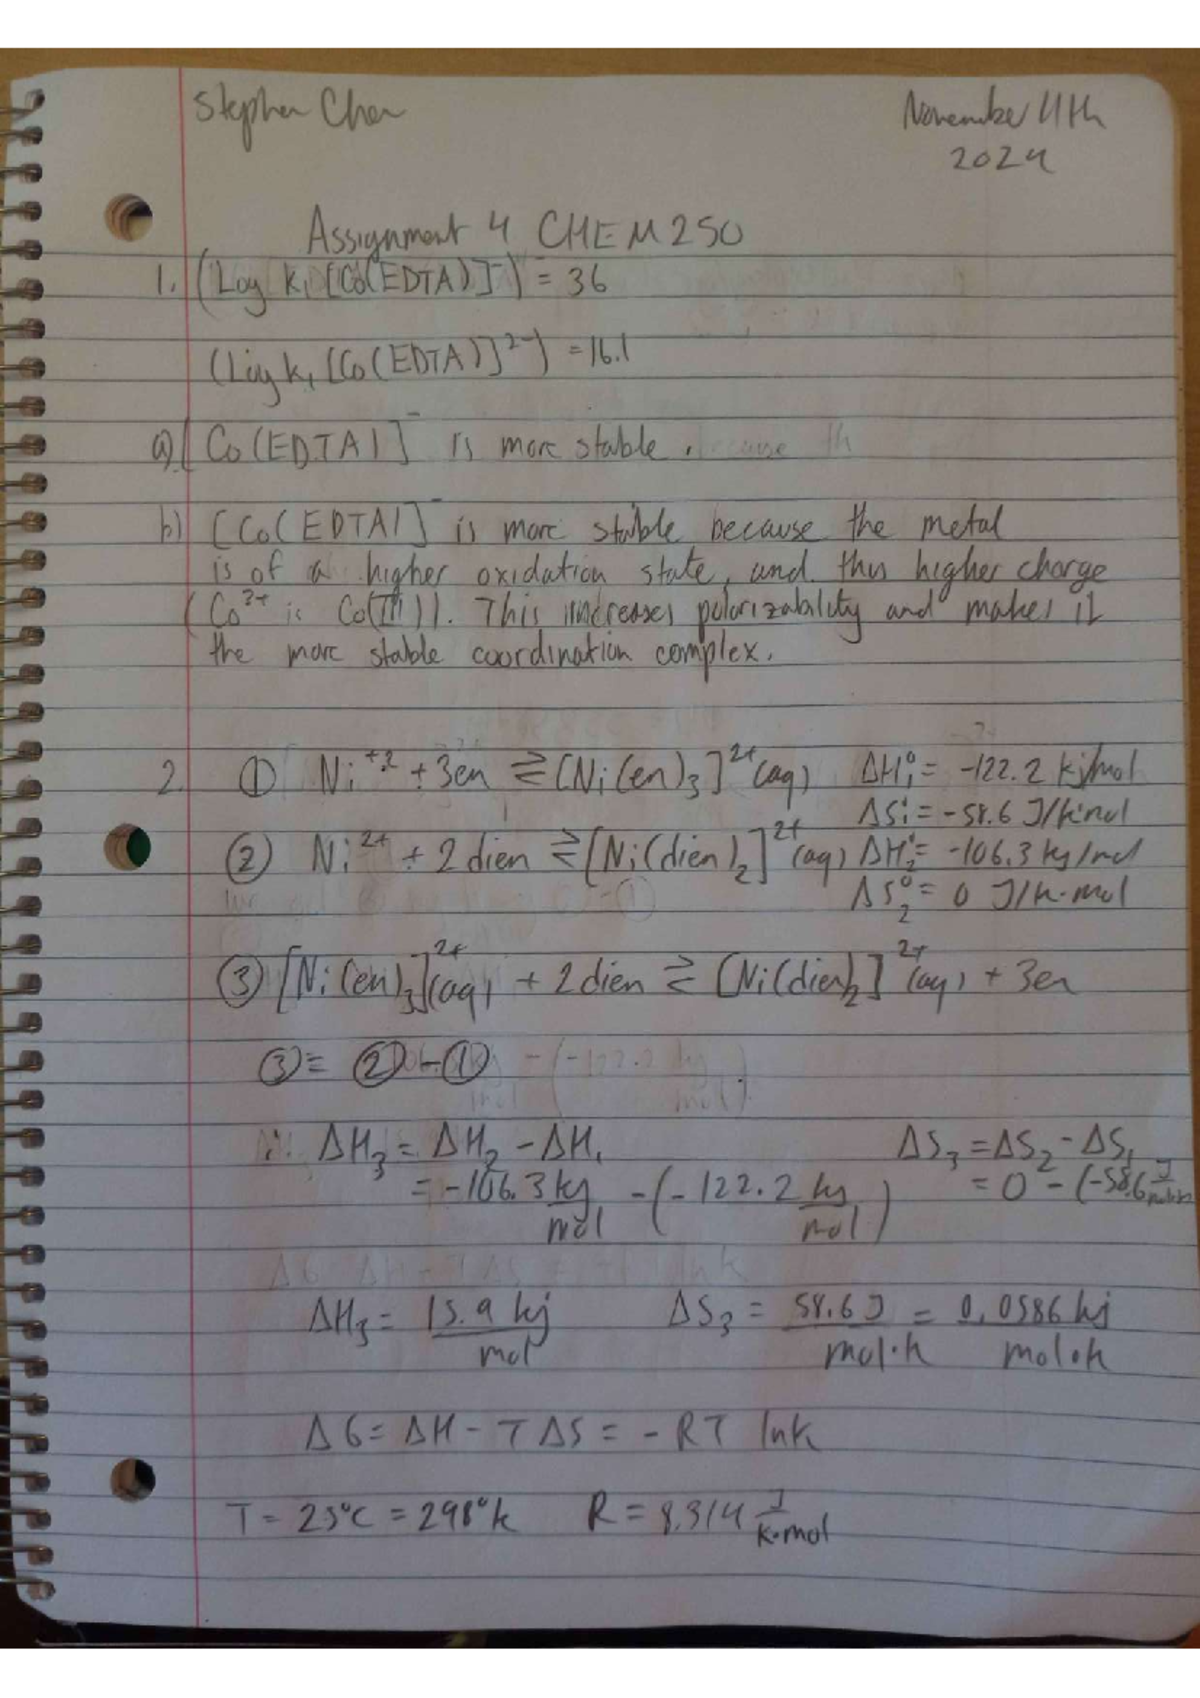 Stephen Chen
November 4th
2024
Assignment 4 CHEM 250
1. (Log K₁ [Co(EDTA)]⁻) = 36
(Log K₁ [Co(EDTA)]²⁻) = 16.1
a) [Co(EDTA)]⁻ is more stable.
b) [Co(EDTA)]⁻ is more stable because the metal
is of a higher oxidation state, and thus higher charge
(Co³⁺ is Co(III)). This increases polarizability and makes it
the more stable coordination complex.
2. ① Ni⁺² + 3en ⇌ [Ni(en)₃]²⁺(aq) ΔH₁° = -122.2 kj/mol
ΔS₁° = -58.6 J/k·mol
② Ni²⁺ + 2 dien ⇌ [Ni(dien)₂]²⁺(aq) ΔH₂° = -106.3 kj/mol
ΔS₂° = 0 J/k·mol
③ [Ni(en)₃]²⁺(aq) + 2 dien ⇌ [Ni(dien)₂]²⁺(aq) + 3en
③ = ② - ①
∴ ΔH₃ = ΔH₂ - ΔH₁ ΔS₃ = ΔS₂ - ΔS₁
= -106.3 kj/mol - (-122.2 kj/mol) = 0 - (-58.6 J/mol·k
ΔH₃ = 15.9 kj/mol ΔS₃ = 58.6 J/mol·k = 0.0586 kj/mol·k
ΔG = ΔH - TΔS = -RT lnk
T = 25°C = 298°k R = 8.314 J/k·mol